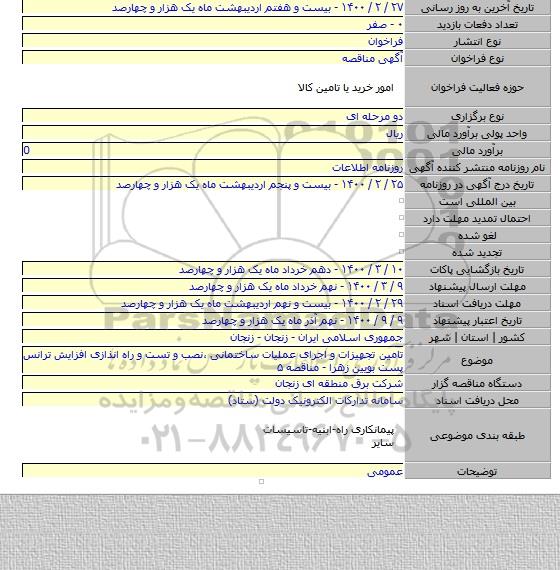 تاریخ آخرین به روز رسانی ۲۷ / ۲ / ۱۴۰۰ - بیست و هفتم اردیبهشت ماه یک هزار و چهارصد
تعداد دفعات بازدید ۰ - صفر
نوع انتشار فراخوان
نوع فراخوان آگهی مناقصه
حوزه فعالیت فراخوان امور خرید یا تامین کالا
نوع برگزاری دو مرحله ای
واحد پولی برآورد مالی ریال
برآورد مالی 0
نام روزنامه منتشر کننده آگهی روزنامه اطلاعات
تاریخ درج آگهی در روزنامه ۲۵ / ۲ / ۱۴۰۰ - بیست و پنجم اردیبهشت ماه یک هزار و چهارصد
بین المللی است
احتمال تمدید مهلت دارد
لغو شده
تجدید شده
تاریخ بازگشایی پاکات ۱۰ / ۳ / ۱۴۰۰ - دهم خرداد ماه یک هزار و چهارصد
مهلت ارسال پیشنهاد ۹ / ۳ / ۱۴۰۰ - نهم خرداد ماه یک هزار و چهارصد
مهلت دریافت اسناد ۲۹ / ۲ / ۱۴۰۰ - بیست و نهم اردیبهشت ماه یک هزار و چهارصد
تاریخ اعتبار پیشنهاد ۹ / ۹ / ۱۴۰۰ - نهم آذر ماه یک هزار و چهارصد
کشور | استان | شهر جمهوری اسلامی ایران - زنجان - زنجان
موضوع تامین تجهیزات و اجرای عملیات ساختمانی ،نصب و تست و راه اندازی افزایش ترانس
پست بویین زهرا - مناقصه ۵
دستگاه مناقصه گزار شرکت برق منطقه ای زنجان
محل دریافت اسناد سامانه تدارکات الکترونیک دولت (ستاد)
طبقه بندی موضوعی پیمانکاری راه-ابنیه-تاسیسات
سایر
توضیحات عمومی
۰۲۱-۸۸۳۴۹۶۷۰-۵